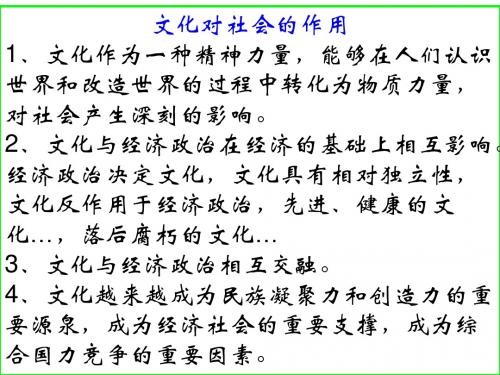 文化对社会的作用
1、文化作为一种精神力量，能够在人们认识
世界和改造世界的过程中转化为物质力量，
对社会产生深刻的影响。
2、文化与经济政治在经济的基础上相互影响。
经济政治决定文化，文化具有相对独立性，
文化反作用于经济政治，先进、健康的文
化…，落后腐朽的文化…
3、文化与经济政治相互交融。
4、文化越来越成为民族凝聚力和创造力的重
要源泉，成为经济社会的重要支撑，成为综
合国力竞争的重要因素。